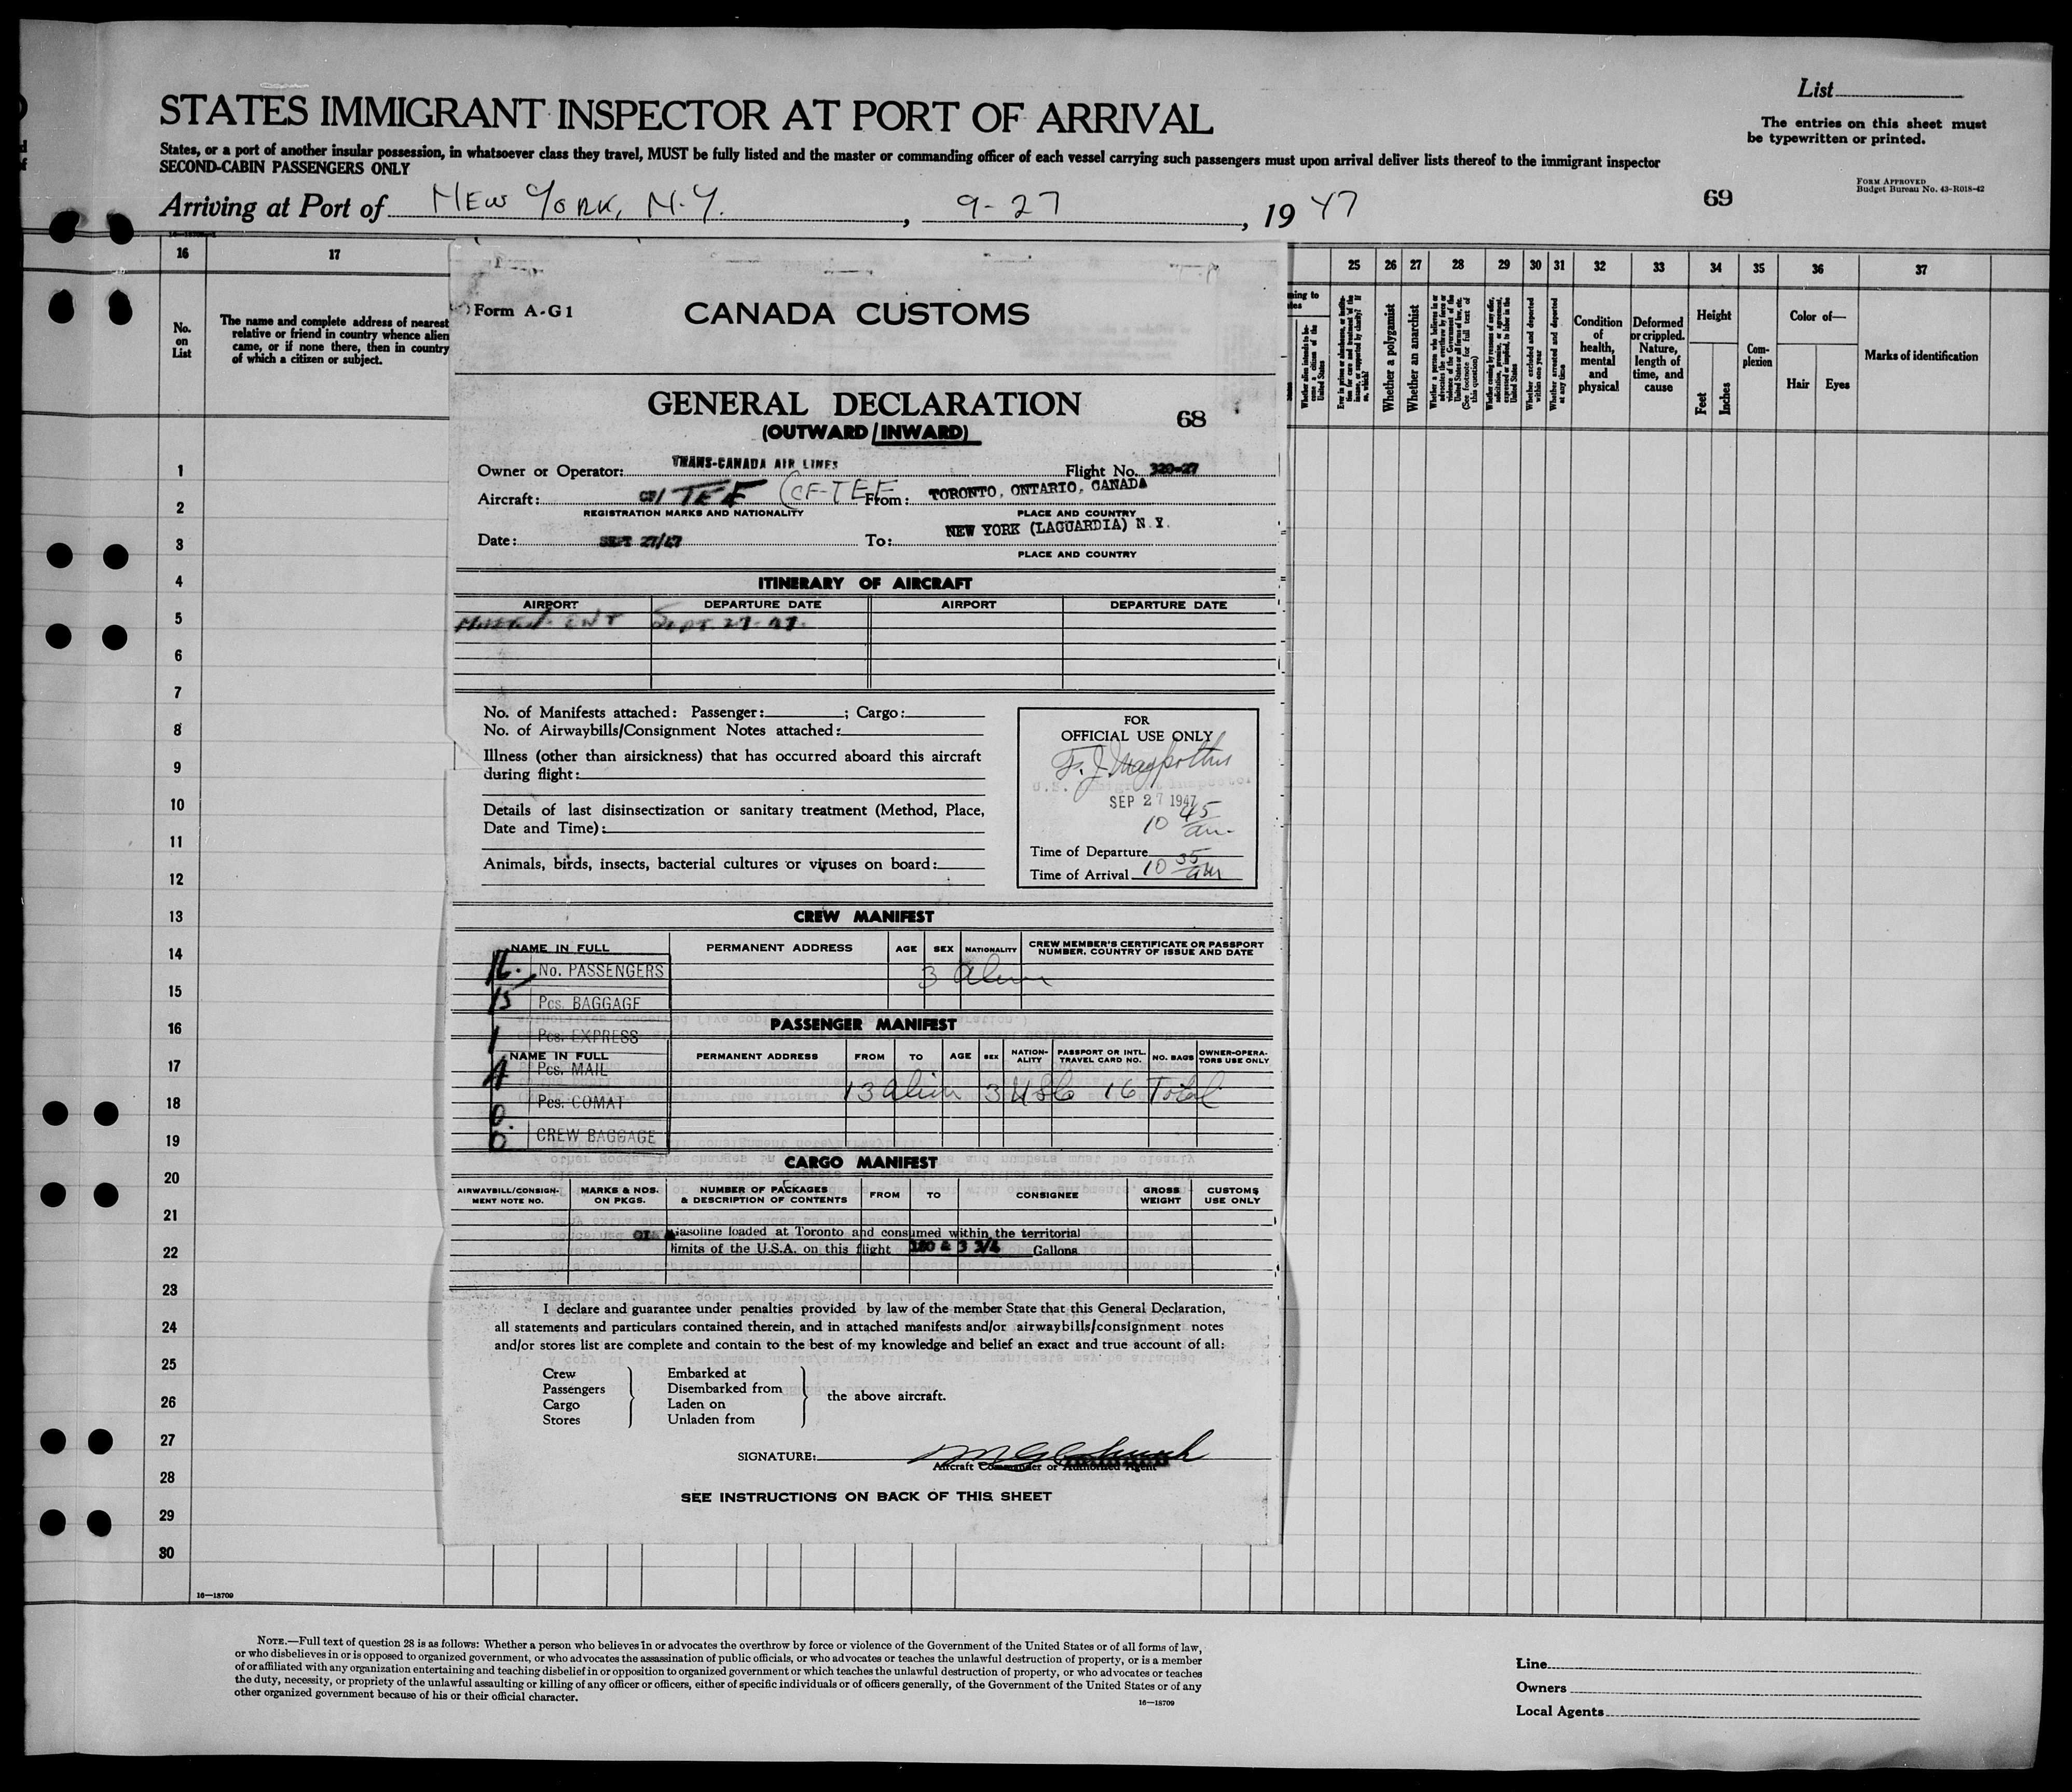 List
STATES IMMIGRANT INSPECTOR AT PORT OF ARRIVAL
The entries on this sheet must
be typewritten or printed.
States, or a port of another insular possession, in whatsoever class they travel, MUST be fully listed and the master or commanding officer of each vessel carrying such passengers must upon arrival deliver lists thereof to the immigrant inspector
SECOND-CABIN PASSENGERS ONLY
FORM APPROVED
Budget Bureau No. 43-R018-42
69
Arriving at Port of NEW YORK, N.Y., 9-27, 1947
16 17 25 26 27 28 29 30 31 32 33 34 35 36 37
No.
on
List
The name and complete address of nearest
relative or friend in country whence alien
came, or if none there, then in country
of which a citizen or subject.
Whether alien intends to be-
come a citizen of the
United States
Whether a polygamist
Whether an anarchist
Whether a person who believes in or
advocates the overthrow by force or
violence of the Government of the
United States or all forms of law, etc.
(See footnote for full text of
this question)
Whether excluded and deported
within one year
Whether arrested and deported
at any time
Condition
of
health,
mental
and
physical
Deformed
or crippled.
Nature,
length of
time, and
cause
Height
Feet
Inches
Com-
plexion
Color of—
Hair
Eyes
Marks of identification
1
2
3
4
5
6
7
8
9
10
11
12
13
14
15
16
17
18
19
20
21
22
23
24
25
26
27
28
29
30
16—18709
Form A-G1
CANADA CUSTOMS
GENERAL DECLARATION
(OUTWARD/INWARD)
68
Owner or Operator: TRANS-CANADA AIR LINES Flight No. 320-27
Aircraft: CF/TEF (CF-TEF From: TORONTO, ONTARIO, CANADA
REGISTRATION MARKS AND NATIONALITY PLACE AND COUNTRY
Date: SEPT 27/47 To: NEW YORK (LAGUARDIA) N.Y.
PLACE AND COUNTRY
ITINERARY OF AIRCRAFT
AIRPORT DEPARTURE DATE AIRPORT DEPARTURE DATE
ONT SEPT. 27-47.
No. of Manifests attached: Passenger: ; Cargo:
No. of Airwaybills/Consignment Notes attached:
Illness (other than airsickness) that has occurred aboard this aircraft
during flight:
Details of last disinsectization or sanitary treatment (Method, Place,
Date and Time):
Animals, birds, insects, bacterial cultures or viruses on board:
FOR
OFFICIAL USE ONLY
F. J.
U.S. Immigrant Inspector
SEP 27 1947
10 45 am.
Time of Departure
Time of Arrival 10 35 am
CREW MANIFEST
NAME IN FULL PERMANENT ADDRESS AGE SEX NATIONALITY CREW MEMBER'S CERTIFICATE OR PASSPORT
NUMBER, COUNTRY OF ISSUE AND DATE
16. No. PASSENGERS
3 alien
15 Pcs. BAGGAGE
PASSENGER MANIFEST
1 Pcs. EXPRESS
NAME IN FULL PERMANENT ADDRESS FROM TO AGE SEX NATION-
ALITY PASSPORT OR INTL.
TRAVEL CARD NO. NO. BAGS OWNER-OPERA-
TORS USE ONLY
4 Pcs. MAIL
13 alien 3 USC 16 Total
0. Pcs. COMAT
0 CREW BAGGAGE
CARGO MANIFEST
AIRWAYBILL/CONSIGN-
MENT NOTE NO. MARKS & NOS.
ON PKGS. NUMBER OF PACKAGES
& DESCRIPTION OF CONTENTS FROM TO CONSIGNEE GROSS
WEIGHT CUSTOMS
USE ONLY
Gasoline loaded at Toronto and consumed within the territorial
limits of the U.S.A. on this flight 180 & 3 3/4 Gallons
I declare and guarantee under penalties provided by law of the member State that this General Declaration,
all statements and particulars contained therein, and in attached manifests and/or airwaybills/consignment notes
and/or stores list are complete and contain to the best of my knowledge and belief an exact and true account of all:
Crew Embarked at
Passengers Disembarked from
Cargo Laden on
Stores Unladen from
the above aircraft.
SIGNATURE:
Aircraft Commander or Authorized Agent
SEE INSTRUCTIONS ON BACK OF THIS SHEET
NOTE.—Full text of question 28 is as follows: Whether a person who believes in or advocates the overthrow by force or violence of the Government of the United States or of all forms of law,
or who disbelieves in or is opposed to organized government, or who advocates the assassination of public officials, or who advocates or teaches the unlawful destruction of property, or is a member
of or affiliated with any organization entertaining and teaching disbelief in or opposition to organized government or which teaches the unlawful destruction of property, or who advocates or teaches
the duty, necessity, or propriety of the unlawful assaulting or killing of any officer or officers, either of specific individuals or of officers generally, of the Government of the United States or of any
other organized government because of his or their official character.
16—18709
Line
Owners
Local Agents